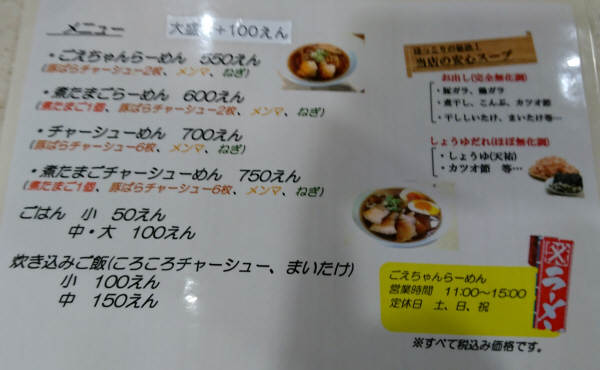 メニュー 大盛 +100えん
・ごえちゃんらーめん 550えん
(豚ばらチャーシュー2枚、メンマ、ねぎ)
・煮たまごらーめん 600えん
(煮たまご1個、豚ばらチャーシュー2枚、メンマ、ねぎ)
・チャーシューめん 700えん
(豚ばらチャーシュー6枚、メンマ、ねぎ)
・煮たまごチャーシューめん 750えん
(煮たまご1個、豚ばらチャーシュー6枚、メンマ、ねぎ)
ごはん 小 50えん
中・大 100えん
炊き込みご飯(ころころチャーシュー、まいたけ)
小 100えん
中 150えん
ほっこりの秘訣!
当店の安心スープ
お出し(完全無化調)
・豚ガラ、鶏ガラ
・煮干し、こんぶ、カツオ節
・干ししいたけ、まいたけ等…
しょうゆだれ(ほぼ無化調)
・しょうゆ(天祐)
・カツオ節 等…
ごえちゃんらーめん
営業時間 11:00～15:00
定休日 土、日、祝
ラーメン
※すべて税込み価格です。